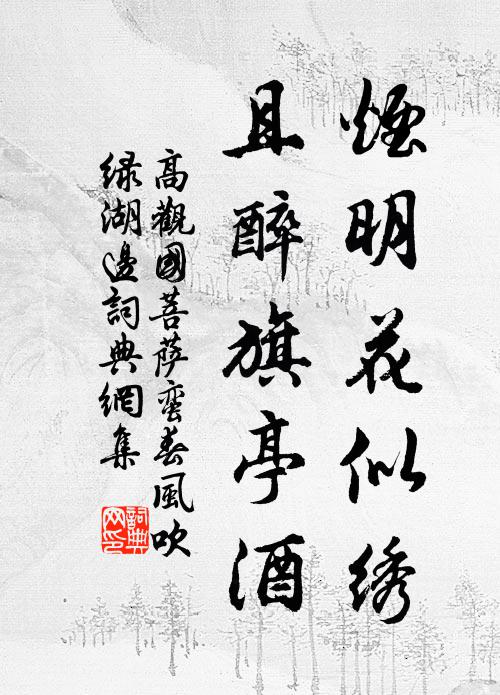 煙明花似绣
且醉旗亭酒
高觀國菩萨蛮春風吹
绿湖邊詞典網集
詞典网印